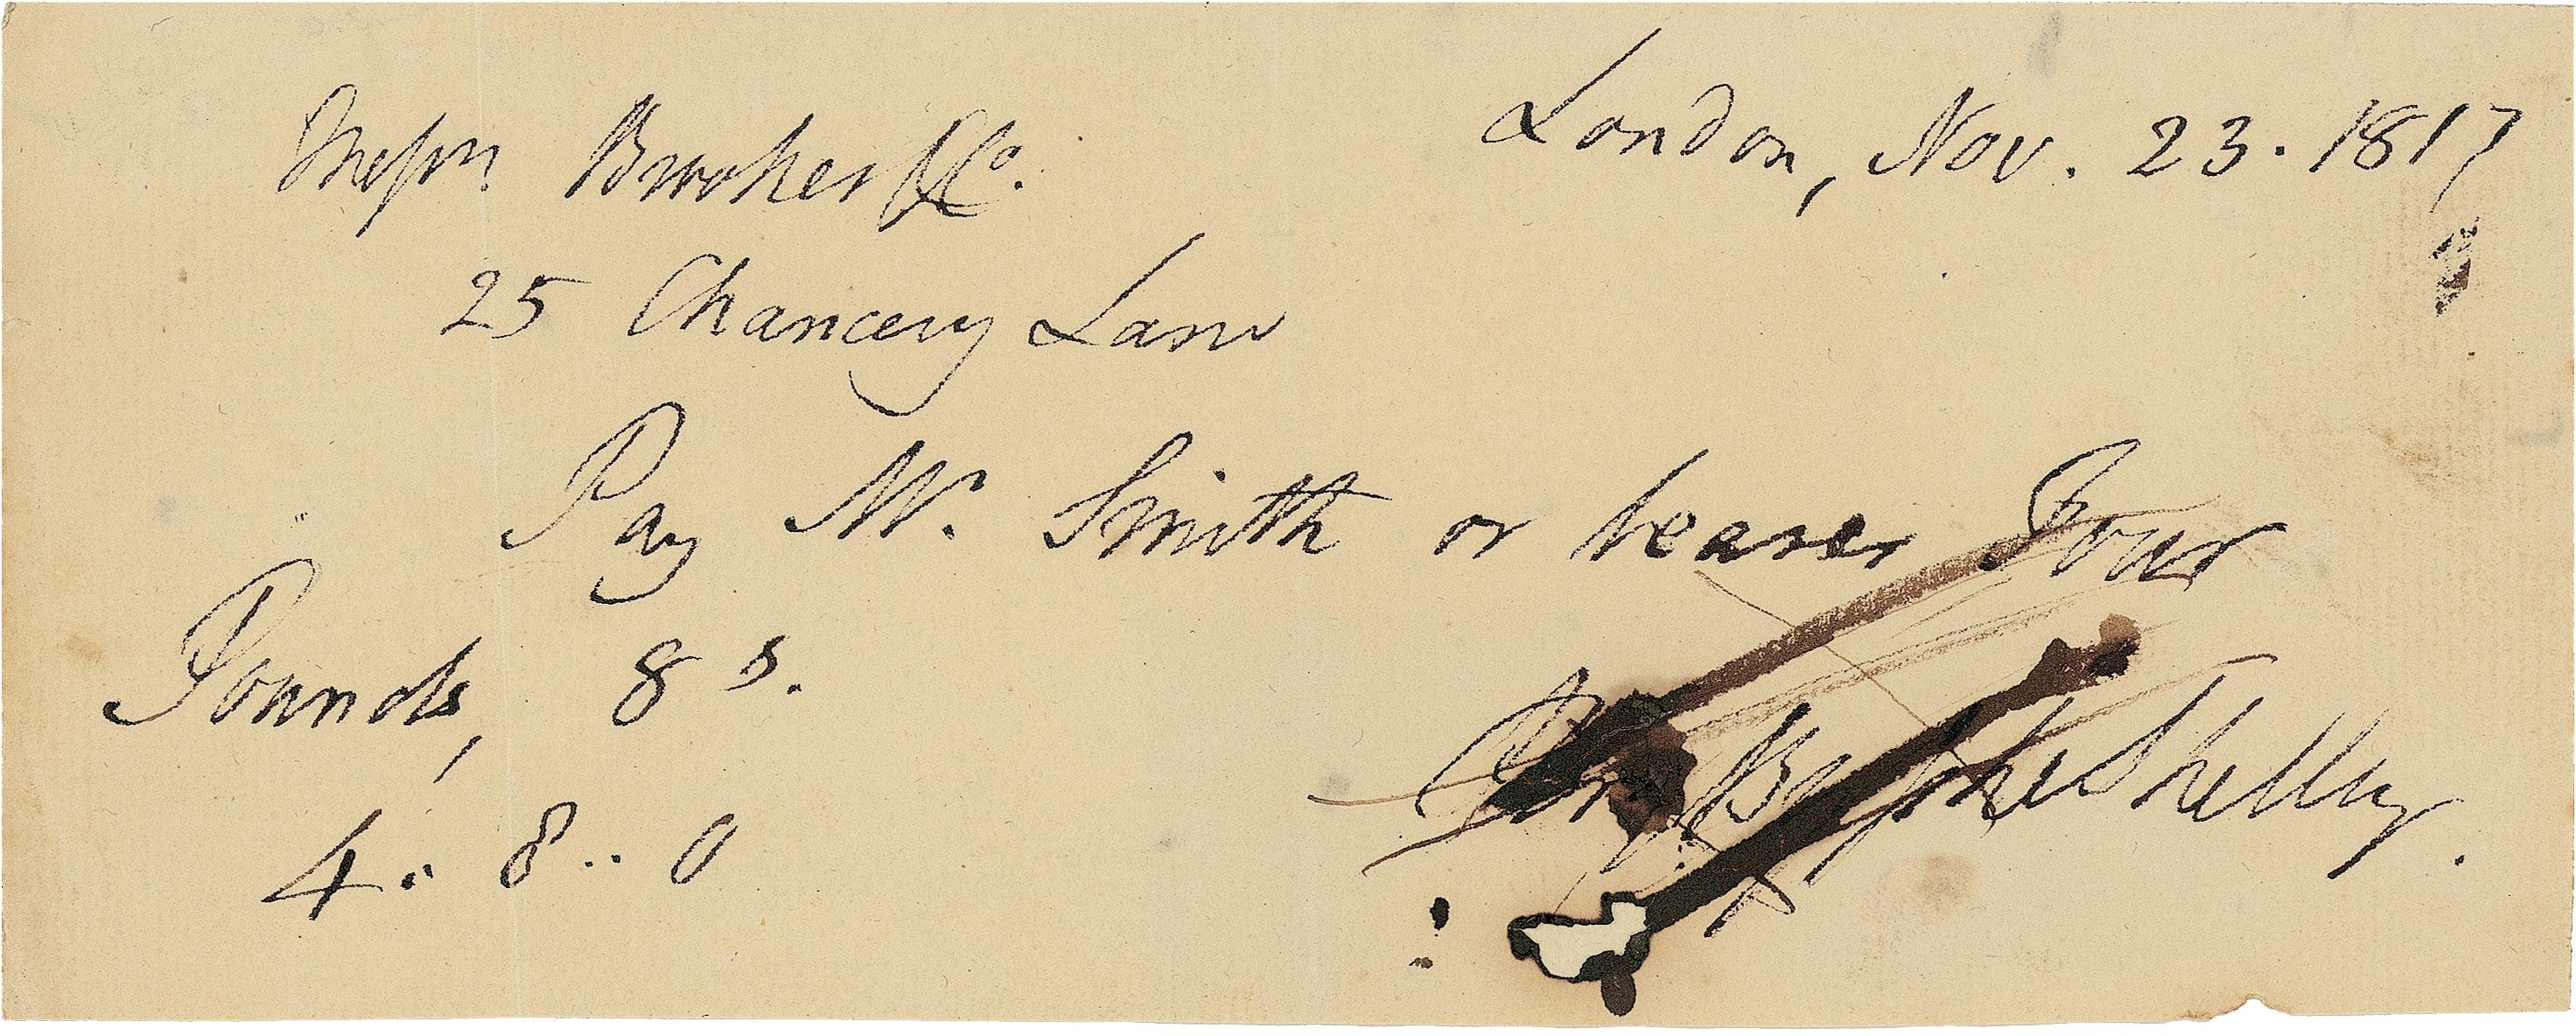 London, Nov. 23. 1817
Messrs Brookes & Co.
25 Chancery Lane
Pay Mr. Smith or bearer Four
Pounds, 8 s.
Percy Bysshe Shelley.
4 . 8 .. 0